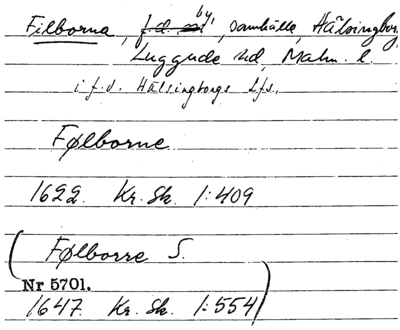 Filborna, f.d. by, samhälle, Hälsingborg
Luggude hd, Malm. l.
i f.d. Hälsingborgs lfs.,
Følborne
1622. Kr. Sk. 1:409
(Følborre S.
Nr 5701.
1647. Kr. Sk. 1:554)